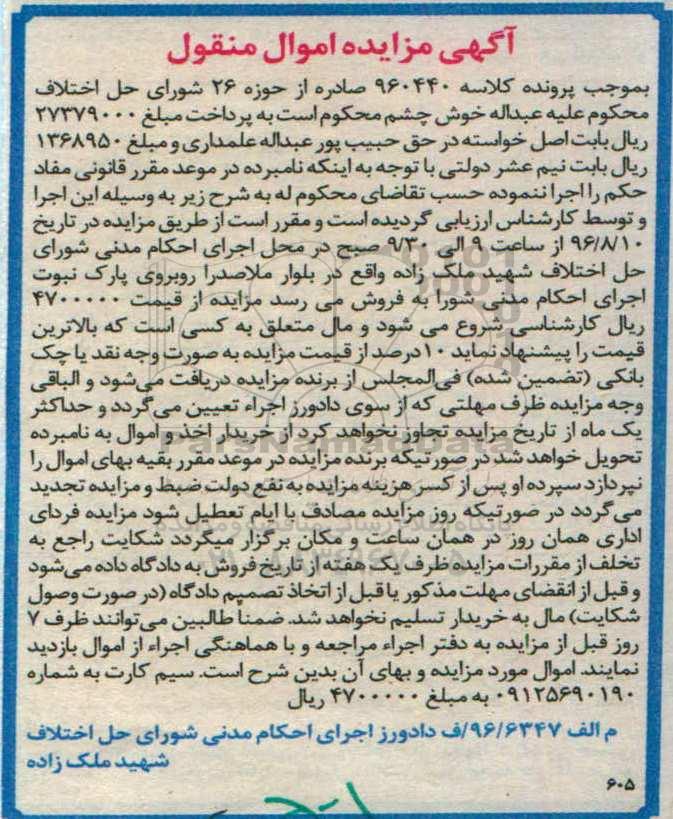 آگهی مزایده اموال منقول
بموجب پرونده کلاسه ۹۶۰۴۴۰ صادره از حوزه ۲۶ شورای حل اختلاف
محکوم علیه عبداله خوش چشم محکوم است به پرداخت مبلغ ۲۷۳۷۹۰۰۰
ریال بابت اصل خواسته در حق حبیب پور عبداله علمداری و مبلغ ۱۳۶۸۹۵۰
ریال بابت نیم عشر دولتی با توجه به اینکه نامبرده در موعد مقرر قانونی مفاد
حکم را اجرا ننموده حسب تقاضای محکوم له به شرح زیر به وسیله این اجرا
و توسط کارشناس ارزیابی گردیده است و مقرر است از طریق مزایده در تاریخ
۹۶/۸/۱۰ از ساعت ۹ الی ۹/۳۰ صبح در محل اجرای احکام مدنی شورای
حل اختلاف شهید ملک زاده واقع در بلوار ملاصدرا روبروی پارک نبوت
اجرای احکام مدنی شورا به فروش می رسد مزایده از قیمت ۴۷۰۰۰۰۰
ریال کارشناسی شروع می شود و مال متعلق به کسی است که بالاترین
قیمت را پیشنهاد نماید ۱۰درصد از قیمت مزایده به صورت وجه نقد یا چک
بانکی (تضمین شده) فی‌المجلس از برنده مزایده دریافت می‌شود و الباقی
وجه مزایده ظرف مهلتی که از سوی دادورز اجراء تعیین می‌گردد و حداکثر
یک ماه از تاریخ مزایده تجاوز نخواهد کرد از خریدار اخذ و اموال به نامبرده
تحویل خواهد شد در صورتیکه برنده مزایده در موعد مقرر بقیه بهای اموال را
نپردازد سپرده او پس از کسر هزینه مزایده به نفع دولت ضبط و مزایده تجدید
می‌گردد در صورتیکه روز مزایده مصادف با ایام تعطیل شود مزایده فردای
اداری همان روز در همان ساعت و مکان برگزار میگردد شکایت راجع به
تخلف از مقررات مزایده ظرف یک هفته از تاریخ فروش به دادگاه داده می‌شود
و قبل از انقضای مهلت مذکور یا قبل از اتخاذ تصمیم دادگاه (در صورت وصول
شکایت) مال به خریدار تسلیم نخواهد شد. ضمنا طالبین می‌توانند ظرف ۷
روز قبل از مزایده به دفتر اجراء مراجعه و با هماهنگی اجراء از اموال بازدید
نمایند. اموال مورد مزایده و بهای آن بدین شرح است. سیم کارت به شماره
۰۹۱۲۵۶۹۰۱۹۰ به مبلغ ۴۷۰۰۰۰۰ ریال
م الف ۹۶/۶۳۴۷/ف دادورز اجرای احکام مدنی شورای حل اختلاف
شهید ملک زاده
۶۰۵
ParsNamadData